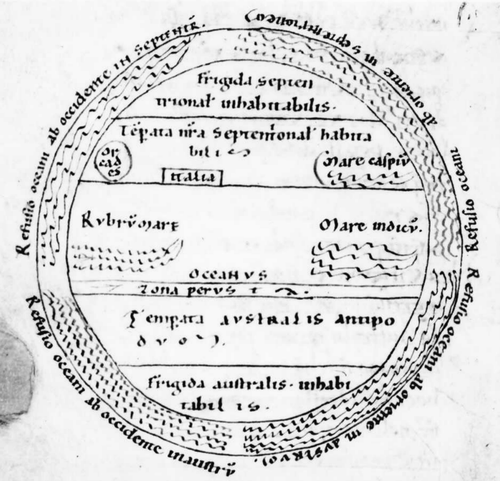 Refusio oceani ab occidente in septentr̄
Refusio oceani ab oriente in septentrionē
frigida septen
trional' inhabitabilis.
Tēpata nr̄a septentrional' habita
bilis
orcades
italia
Mare caspiū
Rubrū mare
Mare indicū.
oceanus
Zona perusta
Tempata australis antipo
frigida australis. inhabi
tabilis.
Refusio oceani ab occidente in austrū
Refusio oceani ab oriente in austrū.